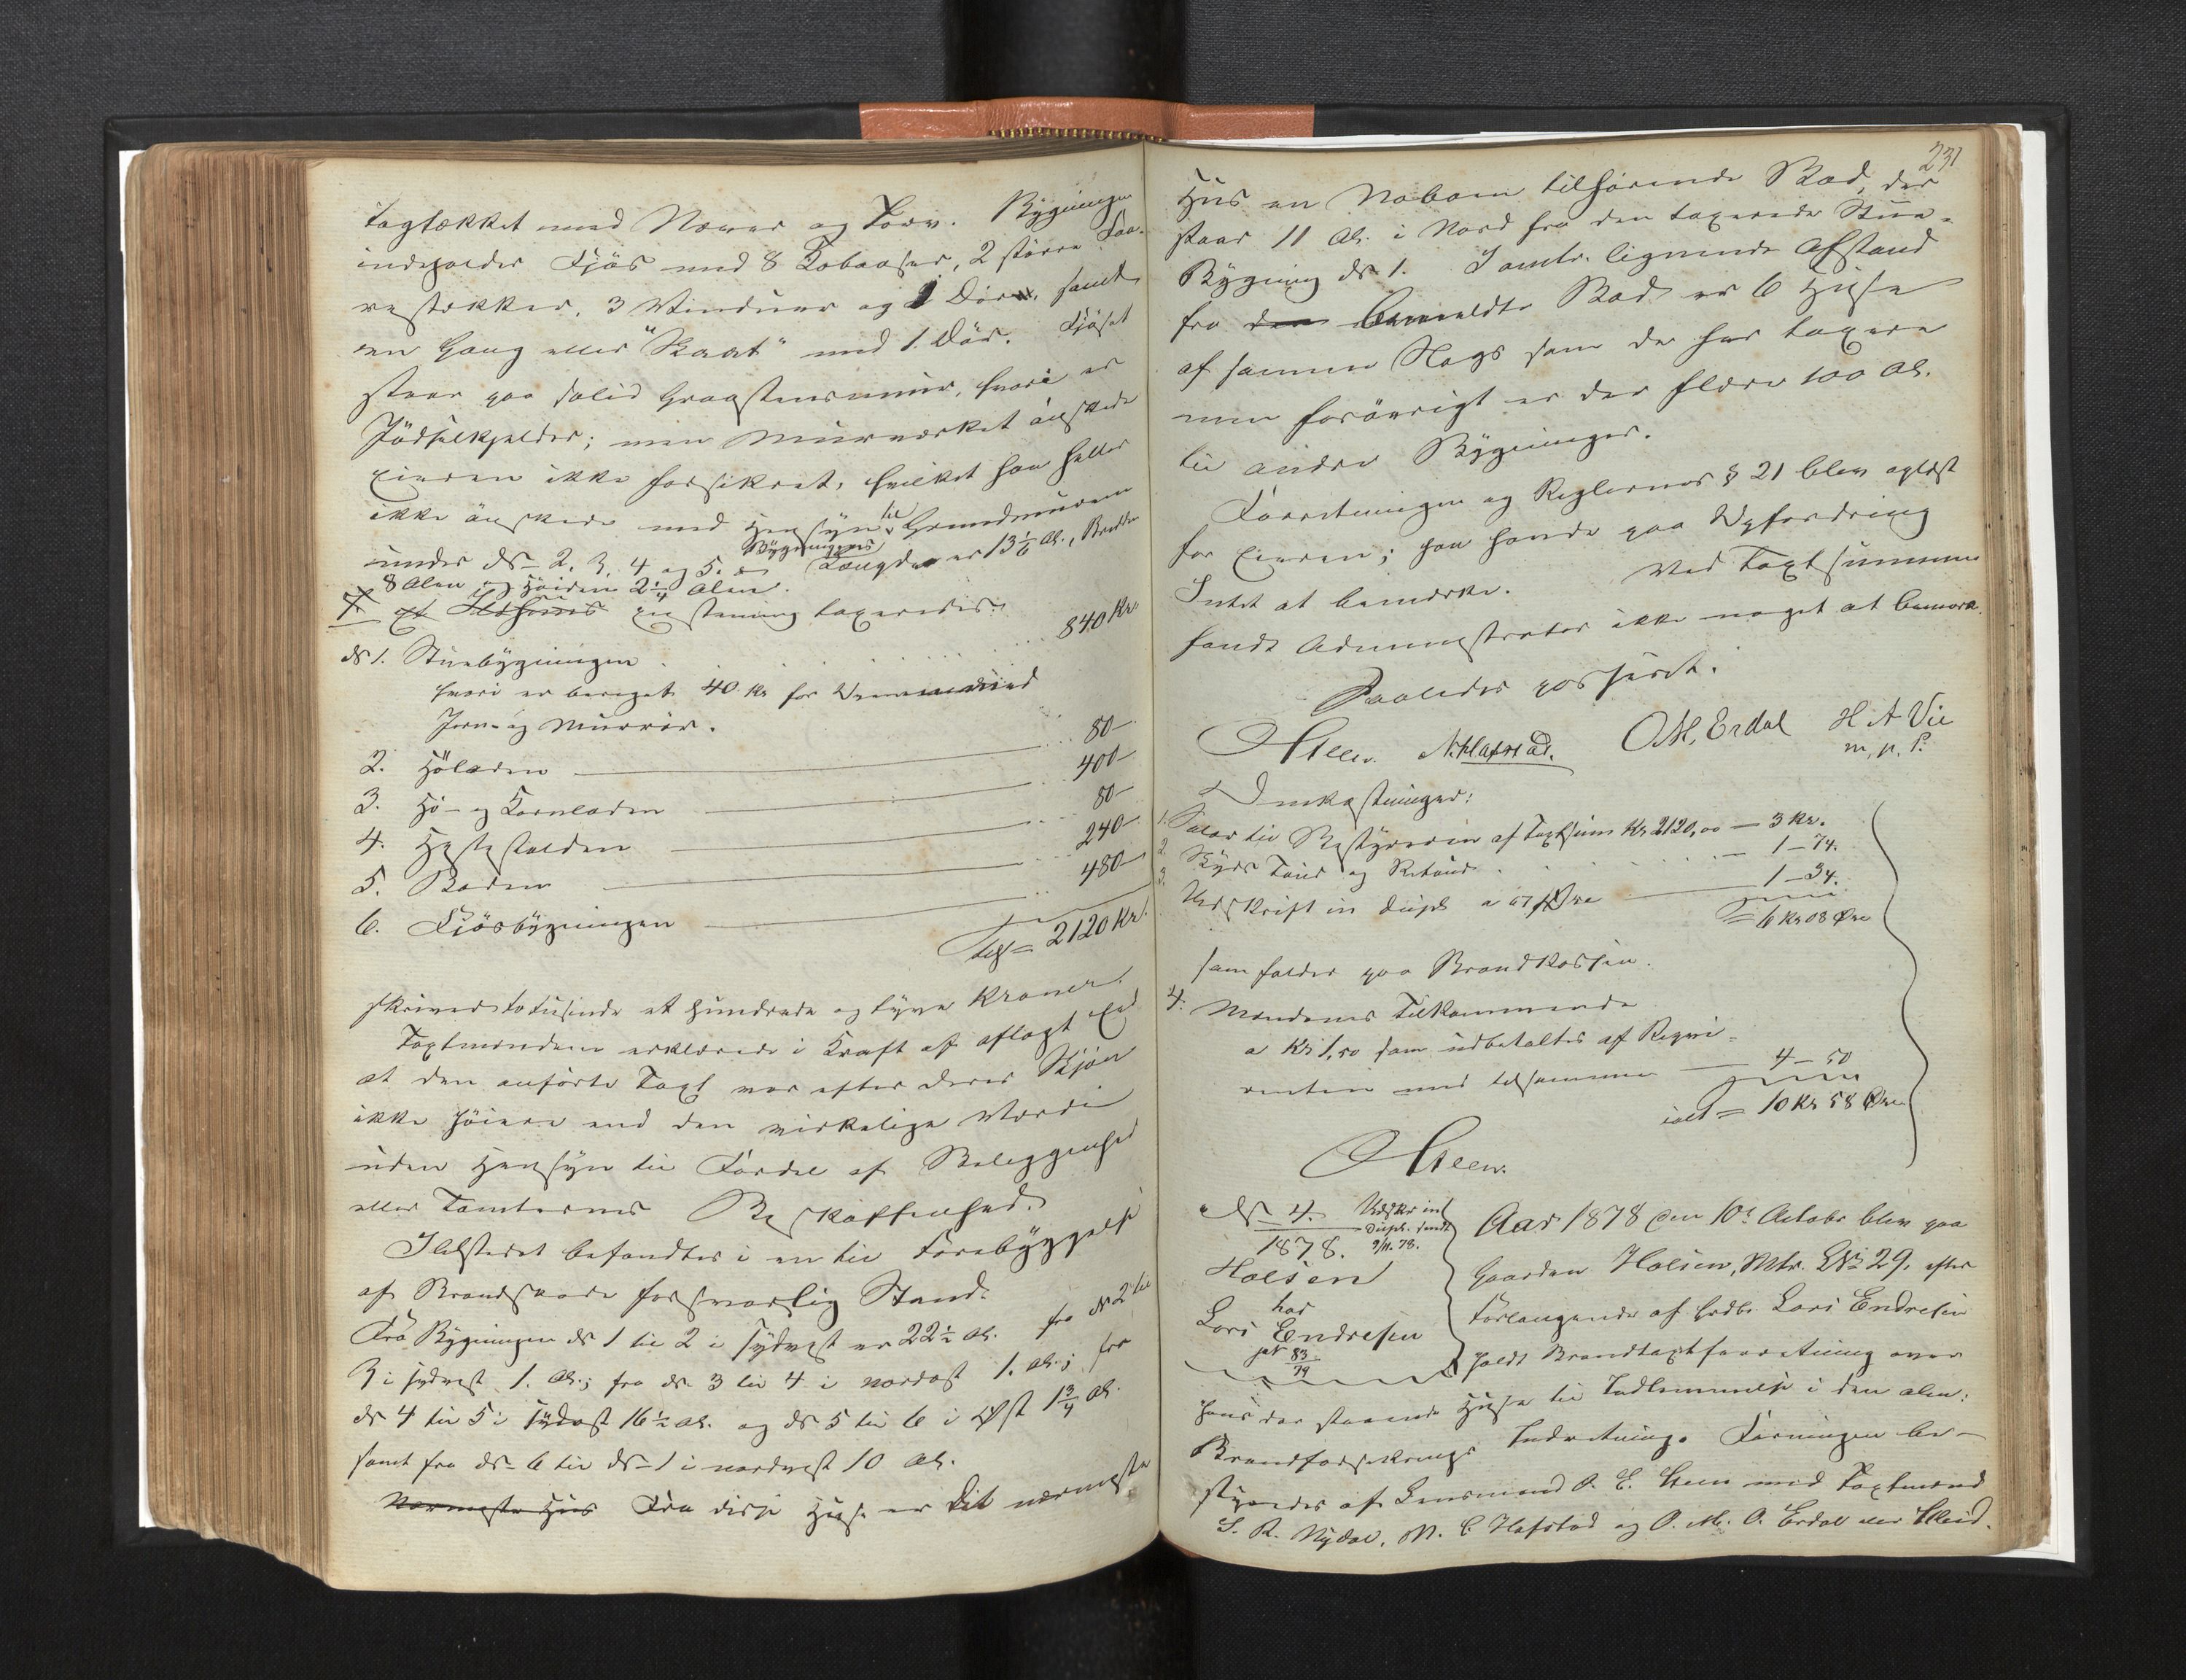 tagtækket med Næver og Torv. Bygningen
indeholder Fjøs med 8 Kobaaser, 2 større Faa-
restækker, 3 Vinduer og 1 Dør, samt
en Gang eller "Skaat" med 1 Dør. Fjøset
staar paa solid Graastensmuur, hvori er
Gjødselkjelder; men Murværket ønskede
Eieren ikke forsikret, hvilket han heller
ikke ønskede med Hensyn til Grundmurene
under No 2, 3, 4 og 5. Bygningens Længde er 13 1/6 Al., Bredden
8 Alen og Høiden 2 1/4 Alen.
7. Ildhuus taxeredes:
No 1. Stuebygningen . . . . . . 840 Kr
hvori er beregnet 40 Kr for
Jern- og Muurrør.
2. Høladen 80 —
3. Hø- og Kornladen 400 —
4. Hestestalden 80 —
5. Boden 240 —
6. Fjøsbygningen 480 —
Tils = 2120 Kr.
skriver totusinde et hundrede og tyve Kroner.
Taxtmændene erklærede i Kraft af aflagt Ed
at den anførte Taxt var efter deres Skjøn
ikke høiere end den virkelige Værdi
uden Hensyn til Fordel af Beliggenhed
eller Tomternes Beskaffenhed.
Ildstedet befandtes i en til Forebyggelse
af Brandskade forsvarlig Stand.
Fra Bygningen No 1 til 2 i Sydvest er 22 1/2 Al. fra No 2 til
3 i sydvest 1. Al.; fra No 3 til 4 i nordost 1. Al.; fra
No 4 til 5 i sydost 16 1/2 Al. og No 5 til 6 i Øst 1 3/4 Al.
samt fra No 6 til No 1 i nordvest 10 Al.
Nærmeste Huus Fra disse Huse er det nærmeste
231
Huus en Naboen tilhørende Bod, der
staar 11 Al. i Nord fra den taxerede Stue-
Bygning No 1. I omtr. lignende Afstand
fra den bemeldte Bod er 6 Huse
af samme Slags som de her taxere
men forøvrigt er der flere 100 Al.
til andre Bygninger.
Forretningen og Reglernes § 21 blev oplæst
for Eieren; han havde paa Opfordring
Intet at bemærke. Ved Taxtsummen
fandt Administrator ikke noget at bemærk.
Saaledes passeret.
OSteen. N. Hafstad. O M. Erdal H A Vie
m. p. P.
Omkostninger:
1. Salær til Bestyreren af Taxtsum Kr 2120,00 — 3 Kr.
2. Skyds Tour og Retour . . . . — 1 – 74.
3. Udskrift in dupl a 67 Øre — 1 – 34.
= 6 Kr 08 Øre
som falder paa Brandkassen.
4. Mændenes Tilkommende
a Kr 1,50 som udbetaltes af Reqvi-
renten med tilsammen — 4 – 50
ialt = 10 Kr 58 Øre
OSteen.
No 4.
1878.
Udskr in
Dupl. sendt
9/11. 78.
Holsen
har
Lars Endresen
jvf 83/79
Aar 1878 den 10de Octobr blev paa
Gaarden Holsen, Mtr. LNo 29, efter
Forlangende af Grdbr. Lars Endresen
holdt Brandtaxtforretning over
hans der staaende Huse til Indlemmelse i den alm:
Brandforsikrings Indretning. Forningen be-
styredes af Lensmand O. E. Steen med Taxtmænd
S. R. Nydal, N. C. Hafstad og O. M. O. Erdal